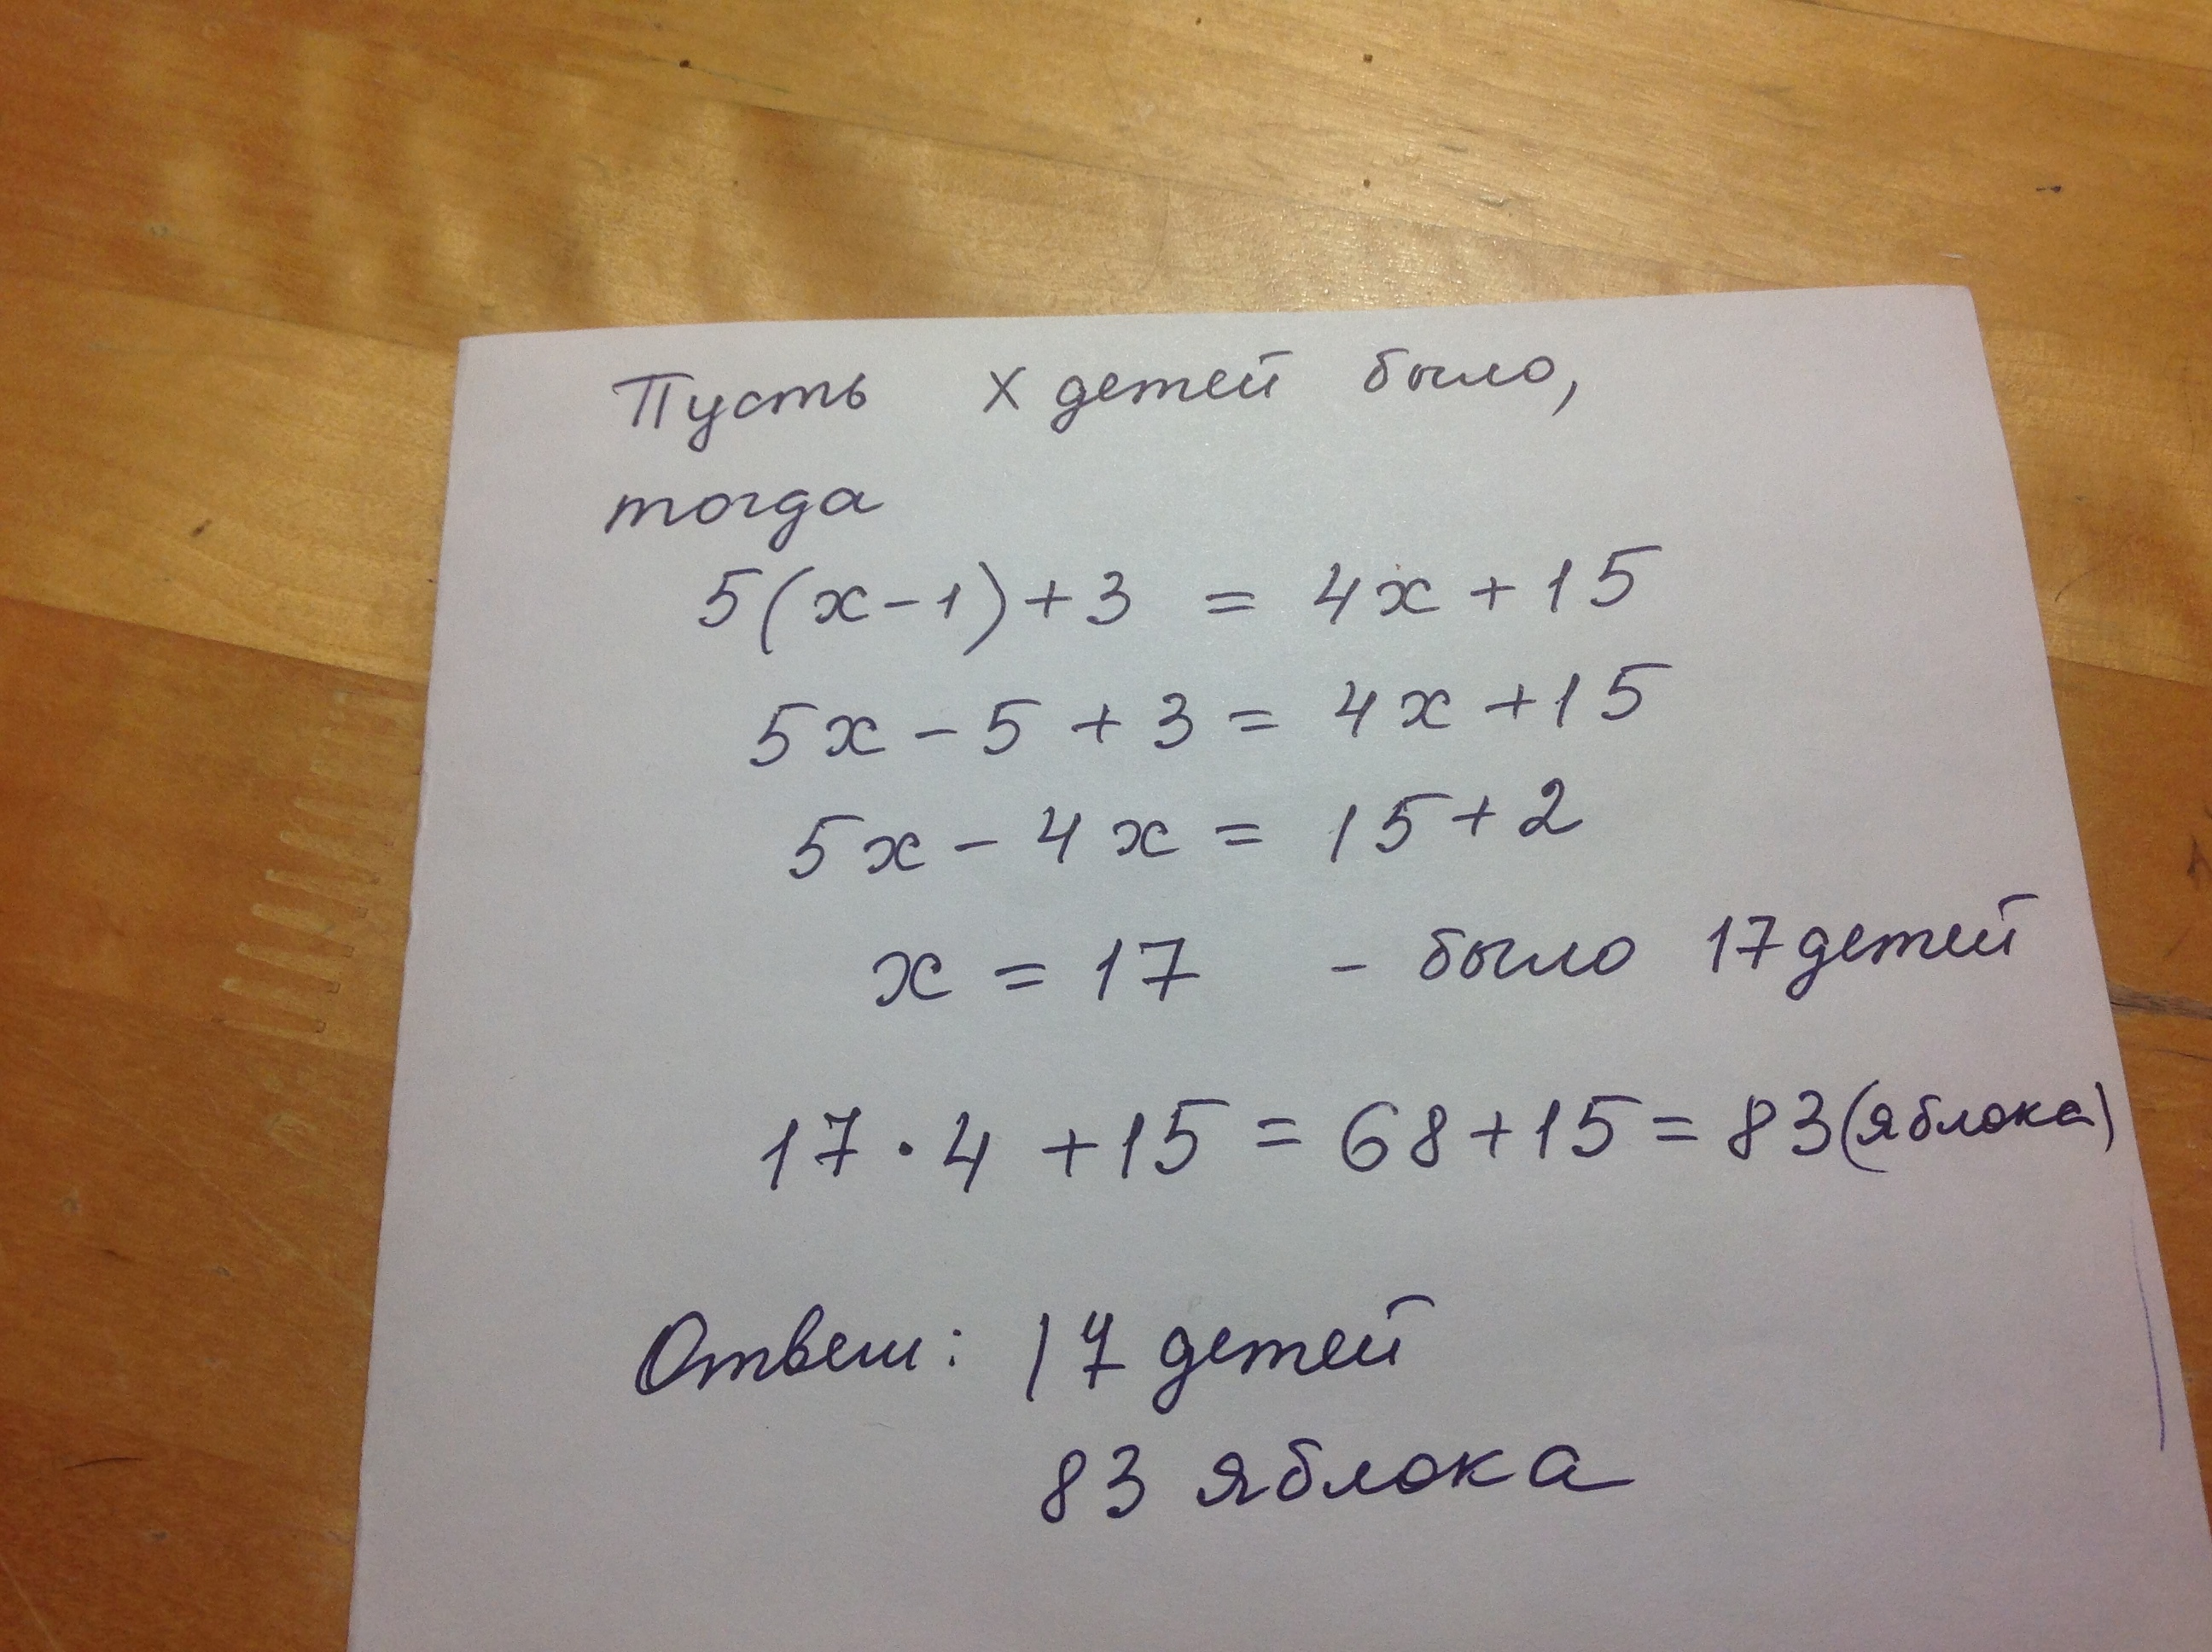 Пусть x детей было,
тогда
5(x-1)+3 = 4x+15
5x-5+3=4x+15
5x-4x=15+2
x=17 - было 17 детей
17·4+15=68+15=83(яблока)
Ответ: 17 детей
83 яблока